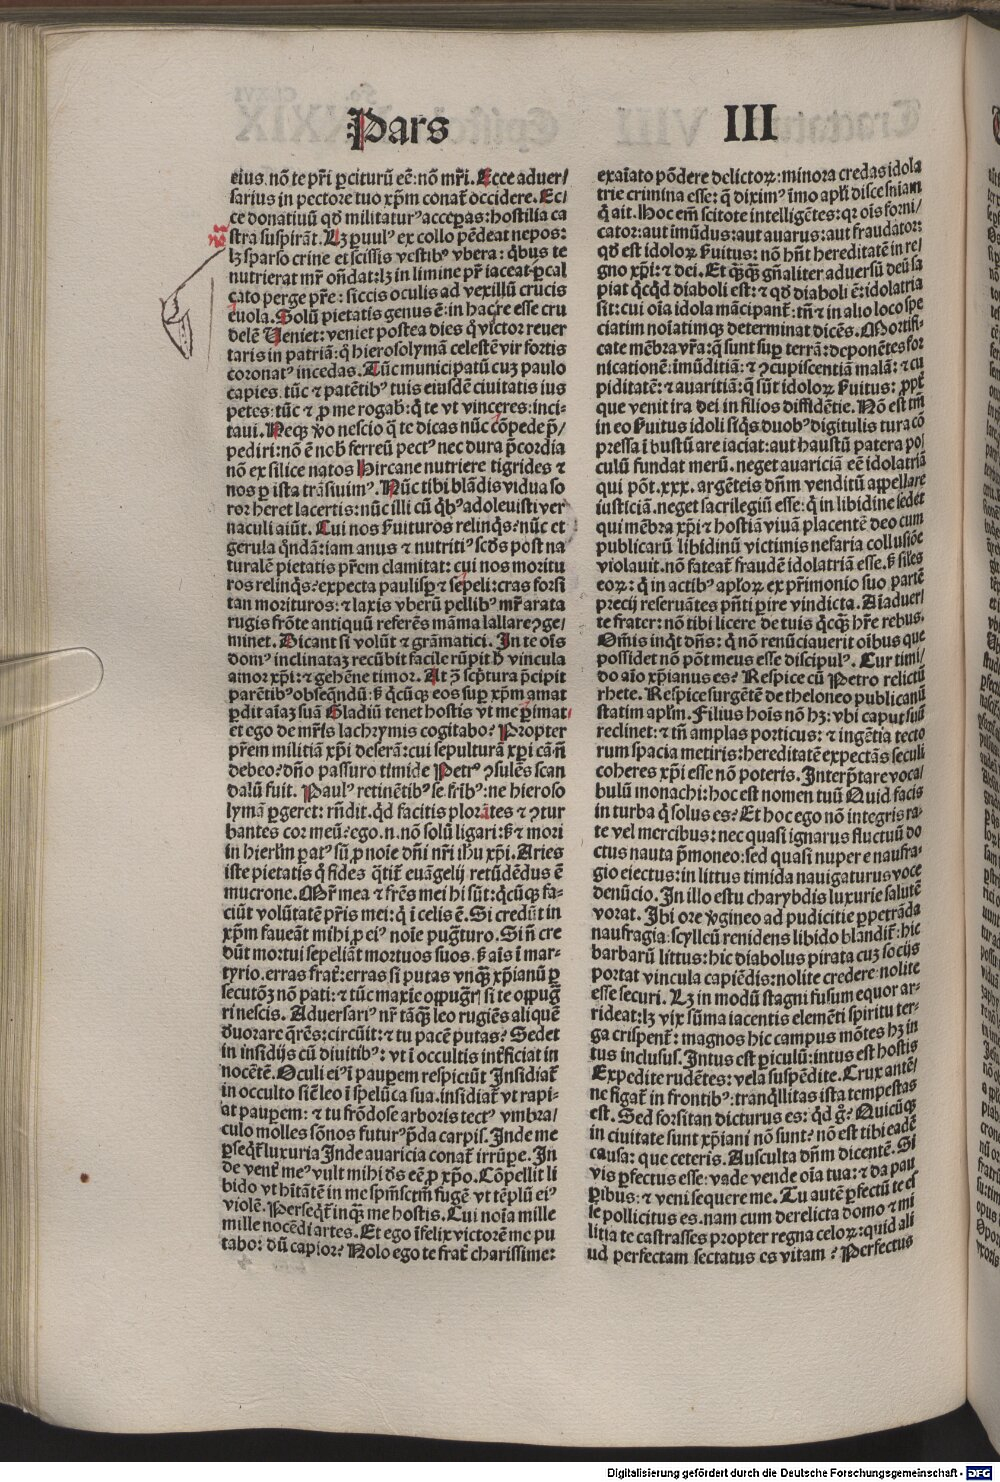 Pars III
eius. nõ te pr̃i ꝑciturũ eẽ: nõ mr̃i. Ecce aduer/
sarius in pectore tuo xp̃m conat᷒ occidere. Ec/
ce donatiuũ qđ militatur᷒ acceꝑas: hostilia ca
stra suspirãt. Lꝫ ꝑuul᷒ ex collo pẽdeat nepos:
lꝫ sparso crine et scissis vestib᷒ vbera: q̃bus te
nutrierat mr̃ oñdat: lꝫ in limine pr̃ iaceat ꝑcal
cato perge pr̃e: siccis oculis ad vexillũ crucis
euola. Solũ pietatis genus ẽ: in hac re esse cru
delẽ Veniet: veniet postea dies q̃ victor reuer
taris in patriã: q̃ hierosolymã celestẽ vir fortis
coronat᷒ incedas. Tũc municipatũ cuꝫ paulo
capies. tũc ⁊ parẽtib᷒ tuis eiusdẽ ciuitatis ius
petes: tũc ⁊ ꝓ me rogab᷒: q̃ te vt vinceres: inci-
taui. Neqꝫ ꝟo nescio q̃ te dicas nũc cõpede p̃/
pediri: nõ ẽ nob᷒ ferreũ pect᷒ nec dura p̃cordia
nõ ex silice natos Hircane nutriere tigrides ⁊
nos ꝑ ista trãsiuim᷒. Nũc tibi blãdis vidua so
ror heret lacertis: nũc illi cũ q̃b᷒ adoleuisti ver
naculi aiũt. Cui nos ẜuituros relinq̃s? nũc et
gerula q̃ndã: iam anus ⁊ nutriti᷒ scđs post na
turalẽ pietatis pr̃em clamitat: cui nos moritu
ros relinq̃s? expecta paulisꝑ ⁊ sepeli: cras forsi
tan morituros: ⁊ laxis vberũ pellib᷒ mr̃ arata
rugis frõte antiquũ referẽs mãma lallare ꝯge/
minet. Dicant si volũt ⁊ grãmatici. In te oĩs
dom᷒ inclinataꝫ recũbit facile rũpit h̃ vincula
amor xp̃i: ⁊ gehẽne timor. At ꝯ̃ scp̃tura p̃cipit
parẽtib᷒ obseq̃ndũ: ẜ q̃cũqꝫ eos suꝑ xp̃m amat
ꝑdit aĩaꝫ suã Gladiũ tenet hostis vt me ꝑimat
et ego de mr̃is lachrymis cogitabo? Propter
pr̃em militiã xp̃i deserã: cui sepulturã xp̃i cã ñ
debeo? dño passuro timide Petr᷒ ꝯsulẽs scan
dalũ fuit. Paul᷒ retinẽtib᷒ se fr̃ib᷒: ne hieroso
lymã ꝑgeret: rñdit. qđ facitis plorãtes ⁊ ꝯtur
bantes cor meũ? ego .n. nõ solũ ligari: ẜ ⁊ mori
in hierl̃m ꝑat᷒ sũ ꝓ noĩe dñi nr̃i ihu xp̃i. Aries
iste pietatis q̃ fides q̃tit᷒ euãgelij retũdẽdus ẽ
mucrone. Mr̃ mea ⁊ fr̃es mei hi sũt: q̃cũqꝫ fa-
ciũt volũtatẽ pr̃is mei: q̃ ĩ celis ẽ. Si credũt in
xp̃m faueãt mihi ꝓ ei᷒ noĩe pug̃turo. Si ñ cre
dũt mortui sepeliãt mortuos suos. ẜ aĩs ĩ mar-
tyrio. erras frat᷒: erras si putas vnq̃ꝫ xp̃ianũ ꝑ
secutõꝫ nõ pati: ⁊ tũc maxie oppug̃r᷒ si te oppug̃
ri nescis. Aduersari᷒ nr̃ tãq̃ꝫ leo rugiẽs aliquẽ
deuorare q̃rẽs: circũit: ⁊ tu pacẽ putas? Sedet
in insidijs cũ diuitib᷒: vt ĩ occultis inṫficiat in
nocẽtẽ. Oculi ei᷒ ĩ pauꝑem respiciũt Insidiat᷒
in occulto siẽ leo ĩ spelũca sua. insidiat᷒ vt rapi-
at pauꝑem: ⁊ tu frõdose arboris tect᷒ vmbra/
culo molles sõnos futur᷒ p̃da carpis. Inde me
ꝑseqt᷒ luxuria Inde auaricia conat᷒ irrũpe. In
de vent᷒ me᷒ vult mihi đs eẽ ꝓ xp̃o. Cõpellit li
bido vt hĩtãtẽ in me sp̃m sctm̃ fugẽ vt tẽplũ ei᷒
violẽ. Perseqt᷒ inq̃ꝫ me hostis. Cui noĩa mille
mille nocẽdi artes. Et ego ĩfelix victorẽ me pu
tabo: dũ capior? Nolo ego te frat᷒ charissime:
exaĩato põdere delictoꝝ: minora credas idola
trie crimina esse: q̃ dixim᷒ ĩmo apl̃i disce sñiam
q̃ ait. Hoc em̃ scitote intelligẽtes: qꝛ oĩs forni/
cator: aut ĩmũdus: aut auarus: aut fraudator:
qđ est idoloꝝ ẜuitus: nõ hñt hereditatẽ in re/
gno xp̃i: ⁊ dei. Et q̃ꝫq̃ꝫ gñaliter aduersũ deũ sa
piat q̃cq̃d diaboli est: ⁊ qđ diaboli ẽ: idolatria
sit: cui oĩa idola mãcipant᷒: tñ ⁊ in alio loco spe
ciatim noĩatimqꝫ determinat dicẽs. Mortifi-
cate mẽbra vr̃a: q̃ sunt suꝑ terrã: deponẽtes for
nicationẽ: ĩmũditiã: ⁊ ꝯcupiscentiã malã: ⁊ cu
piditatẽ: ⁊ auaritiã: q̃ sũt idoloꝝ ẜuitus: ꝓpt᷒
que venit ira dei in filios diffidẽtie. Nõ est tm̃
in eo ẜuitus idoli siq̃s duob᷒ digitulis tura cõ
pressa ĩ bustũ are iaciat: aut haustũ patera po/
culũ fundat merũ. neget auariciã eẽ idolatriã
qui põt .xxx. argẽteis dñm venditũ appellare
iusticiã. neget sacrilegiũ esse: q̃ in libidine sedet
qui mẽbra xp̃i ⁊ hostiã viuã placentẽ deo cum
publicarũ libidinũ victimis nefaria collusiõe
violauit. nõ fateat᷒ fraudẽ idolatriã esse. ẜ siles
eoꝝ: q̃ in actib᷒ aploꝝ ex pr̃imonio suo partẽ
precij reseruãtes pñti ꝑire vindicta. Aĩaduer/
te frater: nõ tibi licere de tuis q̃cq̃ꝫ hr̃e rebus.
Om̃is inq̃t dñs: q̃ nõ renũciauerit oĩbus que
possidet nõ põt meus esse discipul᷒. Cur timi/
do aĩo xp̃ianus es? Respice cũ Petro relictũ
rhete. Respice surgẽtẽ de theloneo publicanũ
statim apl̃m. Filius hoĩs nõ hꝫ: vbi caput suũ
reclinet: ⁊ tñ amplas porticus: ⁊ ingẽtia tecto
rum spacia metiris: hereditatẽ expectãs seculi
coheres xp̃i esse nõ poteris. Interp̃tare voca/
bulũ monachi: hoc est nomen tuũ Quid facis
in turba q̃ solus es? Et hoc ego nõ integris ra-
te vel mercibus: nec quasi ignarus fluctuũ do
ctus nauta p̃moneo: sed quasi nuper e naufra-
gio eiectus: in littus timida nauigaturus voce
denũcio. In illo estu charybdis luxurie salutẽ
vorat. Ibi ore ꝟgineo ad pudicitie ꝑpetrãda
naufragia: scylleũ renidens libido blandit᷒: hic
barbarũ littus: hic diabolus pirata cuꝫ socijs
portat vincula capiẽdis: nolite credere nolite
esse securi. Lꝫ in modũ stagni fusum equor ar-
rideat: lꝫ vix sũma iacentis elemẽti spiritu ter-
ga crispent᷒: magnos hic campus mõtes hꝫ in
tus inclusus. Intus est ꝑiculũ: intus est hostis
Expedite rudẽtes: vela suspẽdite. Crux antẽ/
ne figat᷒ in frontib᷒: tranq̃llitas ista tempestas
est. Sed forsitan dicturus es: q̃d g᷒? Quicũqꝫ
in ciuitate sunt xp̃iani nõ sunt? nõ est tibi eadẽ
causa: que ceteris. Ausculta dñm dicentẽ. Si
vis ꝑfectus esse: vade vende oĩa tua: ⁊ da pau
ꝑibus: ⁊ veni sequere me. Tu autẽ ꝑfectũ te es
se pollicitus es. nam cum derelicta domo ⁊ mi
litia te castrasses propter regna celoꝝ: quid ali
ud perfectam sectatus es vitam? Perfectus
Digitalisierung gefördert durch die Deutsche Forschungsgemeinschaft - DFG